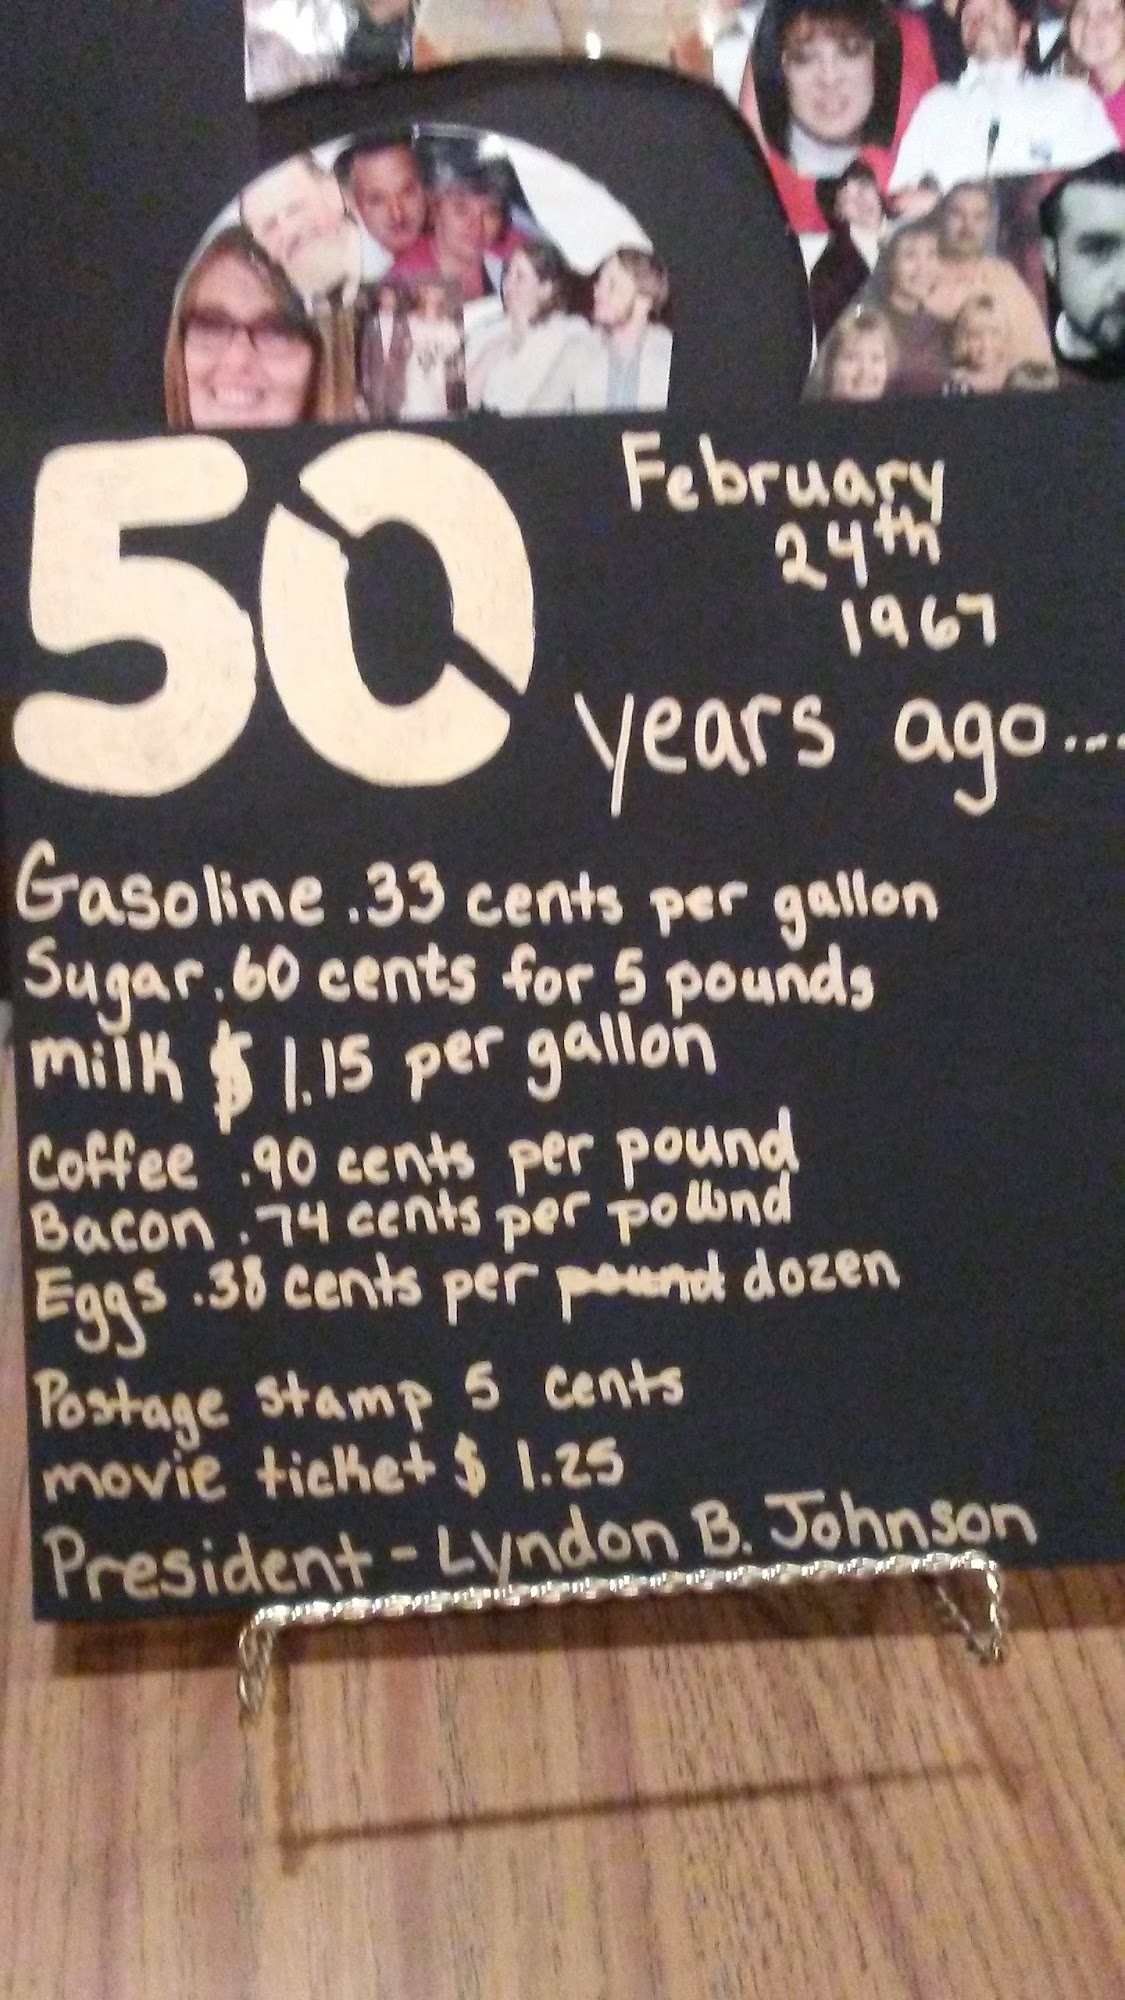 50
February
24th
1967
years ago....
Gasoline .33 cents per gallon
Sugar .60 cents for 5 pounds
milk $ 1.15 per gallon
Coffee .90 cents per pound
Bacon .74 cents per pound
Eggs .38 cents per pound dozen
Postage stamp 5 cents
movie ticket $ 1.25
President - Lyndon B. Johnson